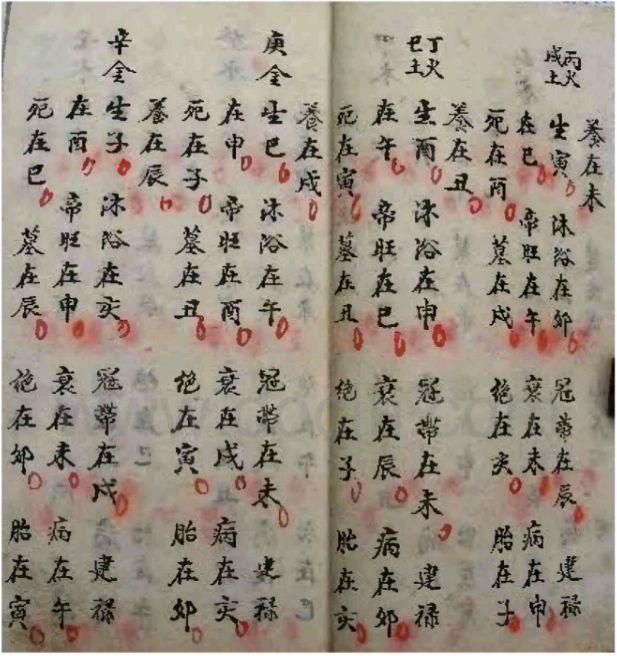 養在未
丙火
戊土
生寅 沐浴在卯 冠帶在辰 建祿
在巳 帝旺在午 衰在未 病在申
死在酉 墓在戌 絕在亥 胎在子
養在丑
丁火
巳土
生酉 沐浴在申 冠帶在未 建祿
在午 帝旺在巳 衰在辰 病在卯
死在寅 墓在丑 絕在子 胎在亥
養在戌
庚金 生巳 沐浴在午 冠帶在未 建祿
在申 帝旺在酉 衰在戌 病在亥
死在子 墓在丑 絕在寅 胎在卯
養在辰
辛金 生子 沐浴在亥 冠帶在戌 建祿
在酉 帝旺在申 衰在未 病在午
死在巳 墓在辰 絕在卯 胎在寅